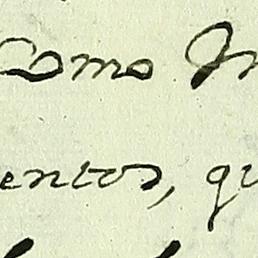 Como In
entos, qu